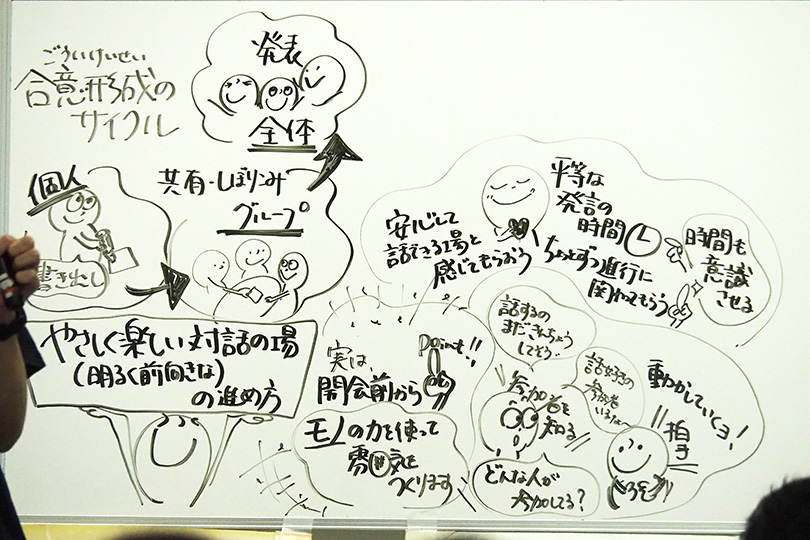 ごういけいせい
合意形成の
サイクル
発表
全体
個人
書き出し
共有・しぼりこみ
グループ
やさしく楽しい対話の場
(明るく前向きな)
の進め方
安心して
話できる場と
感じてもらおう
平等な
発言の
時間
ちょっとずつ進行に
関わてもらう
時間も
意識
させる
実は、
開会前から
Point!!
モノの力を使って
雰囲気を
つくります
話するの
まだきんちょう
してそう!
話好きの
参加者
いるな〜
参加者を
知る
どんな人が
参加してる?
動かしていくヨ!
拍手